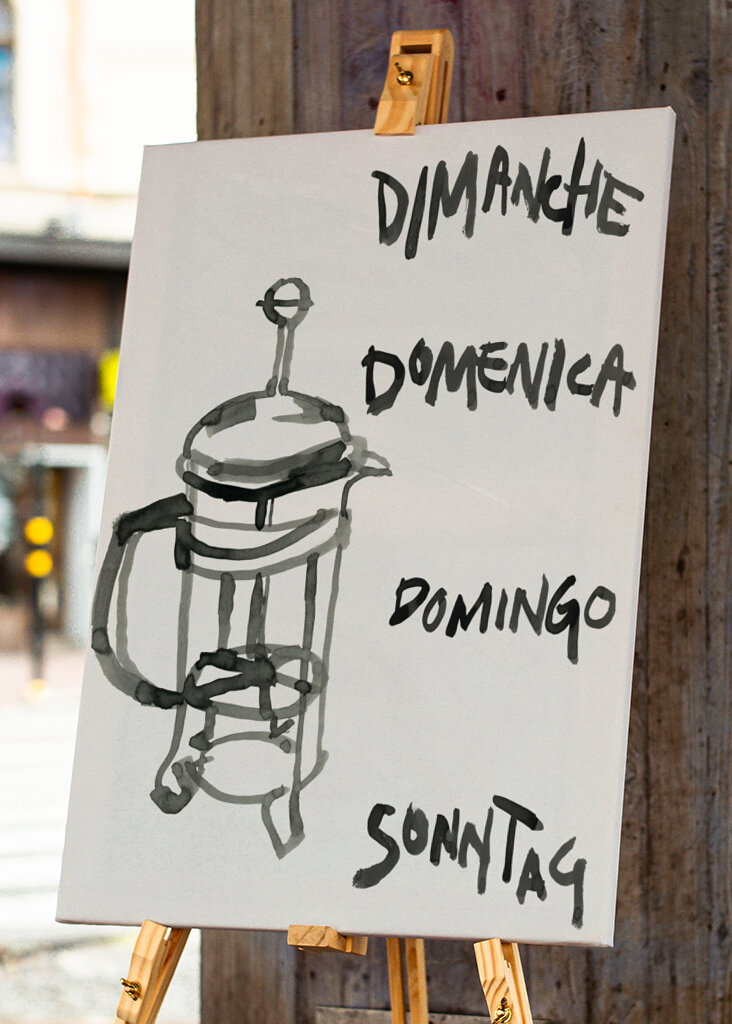 DIMANCHE
DOMENICA
DOMINGO
SONNTAG